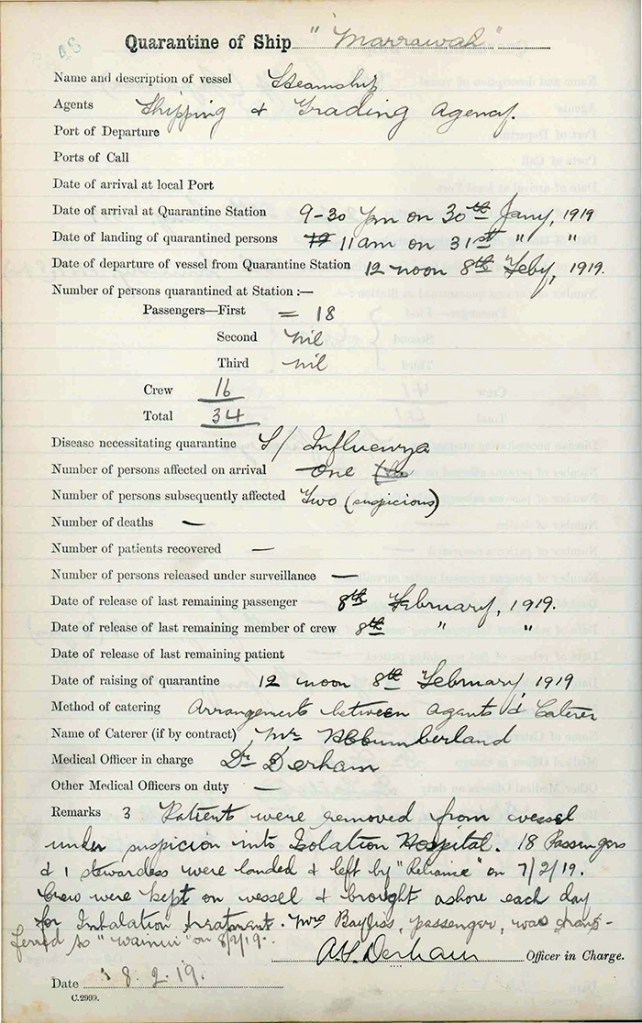 Quarantine of Ship "Marrawah"
Name and description of vessel Steamship
Agents Shipping & Trading Agency.
Port of Departure
Ports of Call
Date of arrival at local Port
Date of arrival at Quarantine Station 9-30 pm on 30th Jany, 1919
Date of landing of quarantined persons 11am on 31st " "
Date of departure of vessel from Quarantine Station 12 noon 8th Feby, 1919.
Number of persons quarantined at Station :—
Passengers—First = 18
Second nil
Third nil
Crew 16
Total 34
Disease necessitating quarantine S/ Influenza
Number of persons affected on arrival One
Number of persons subsequently affected Two (suspicious)
Number of deaths —
Number of patients recovered —
Number of persons released under surveillance —
Date of release of last remaining passenger 8th February, 1919.
Date of release of last remaining member of crew 8th " "
Date of release of last remaining patient
Date of raising of quarantine 12 noon 8th February 1919
Method of catering Arrangements between Agents & Caterer
Name of Caterer (if by contract) Mr
Medical Officer in charge Dr Derham
Other Medical Officers on duty —
Remarks 3 Patients were removed from vessel
under suspicion into Isolation Hospital. 18 Passengers
& 1 stewardess were landed & left by "Reliance" on 7/2/19.
Crew were kept on vessel & brought ashore each day
for Inhalation treatment. Mrs Bayliss, passenger, was trans-
ferred to "Wainui" on 8/2/19.
Derham Officer in Charge.
Date 8.2.19.
C.2909.